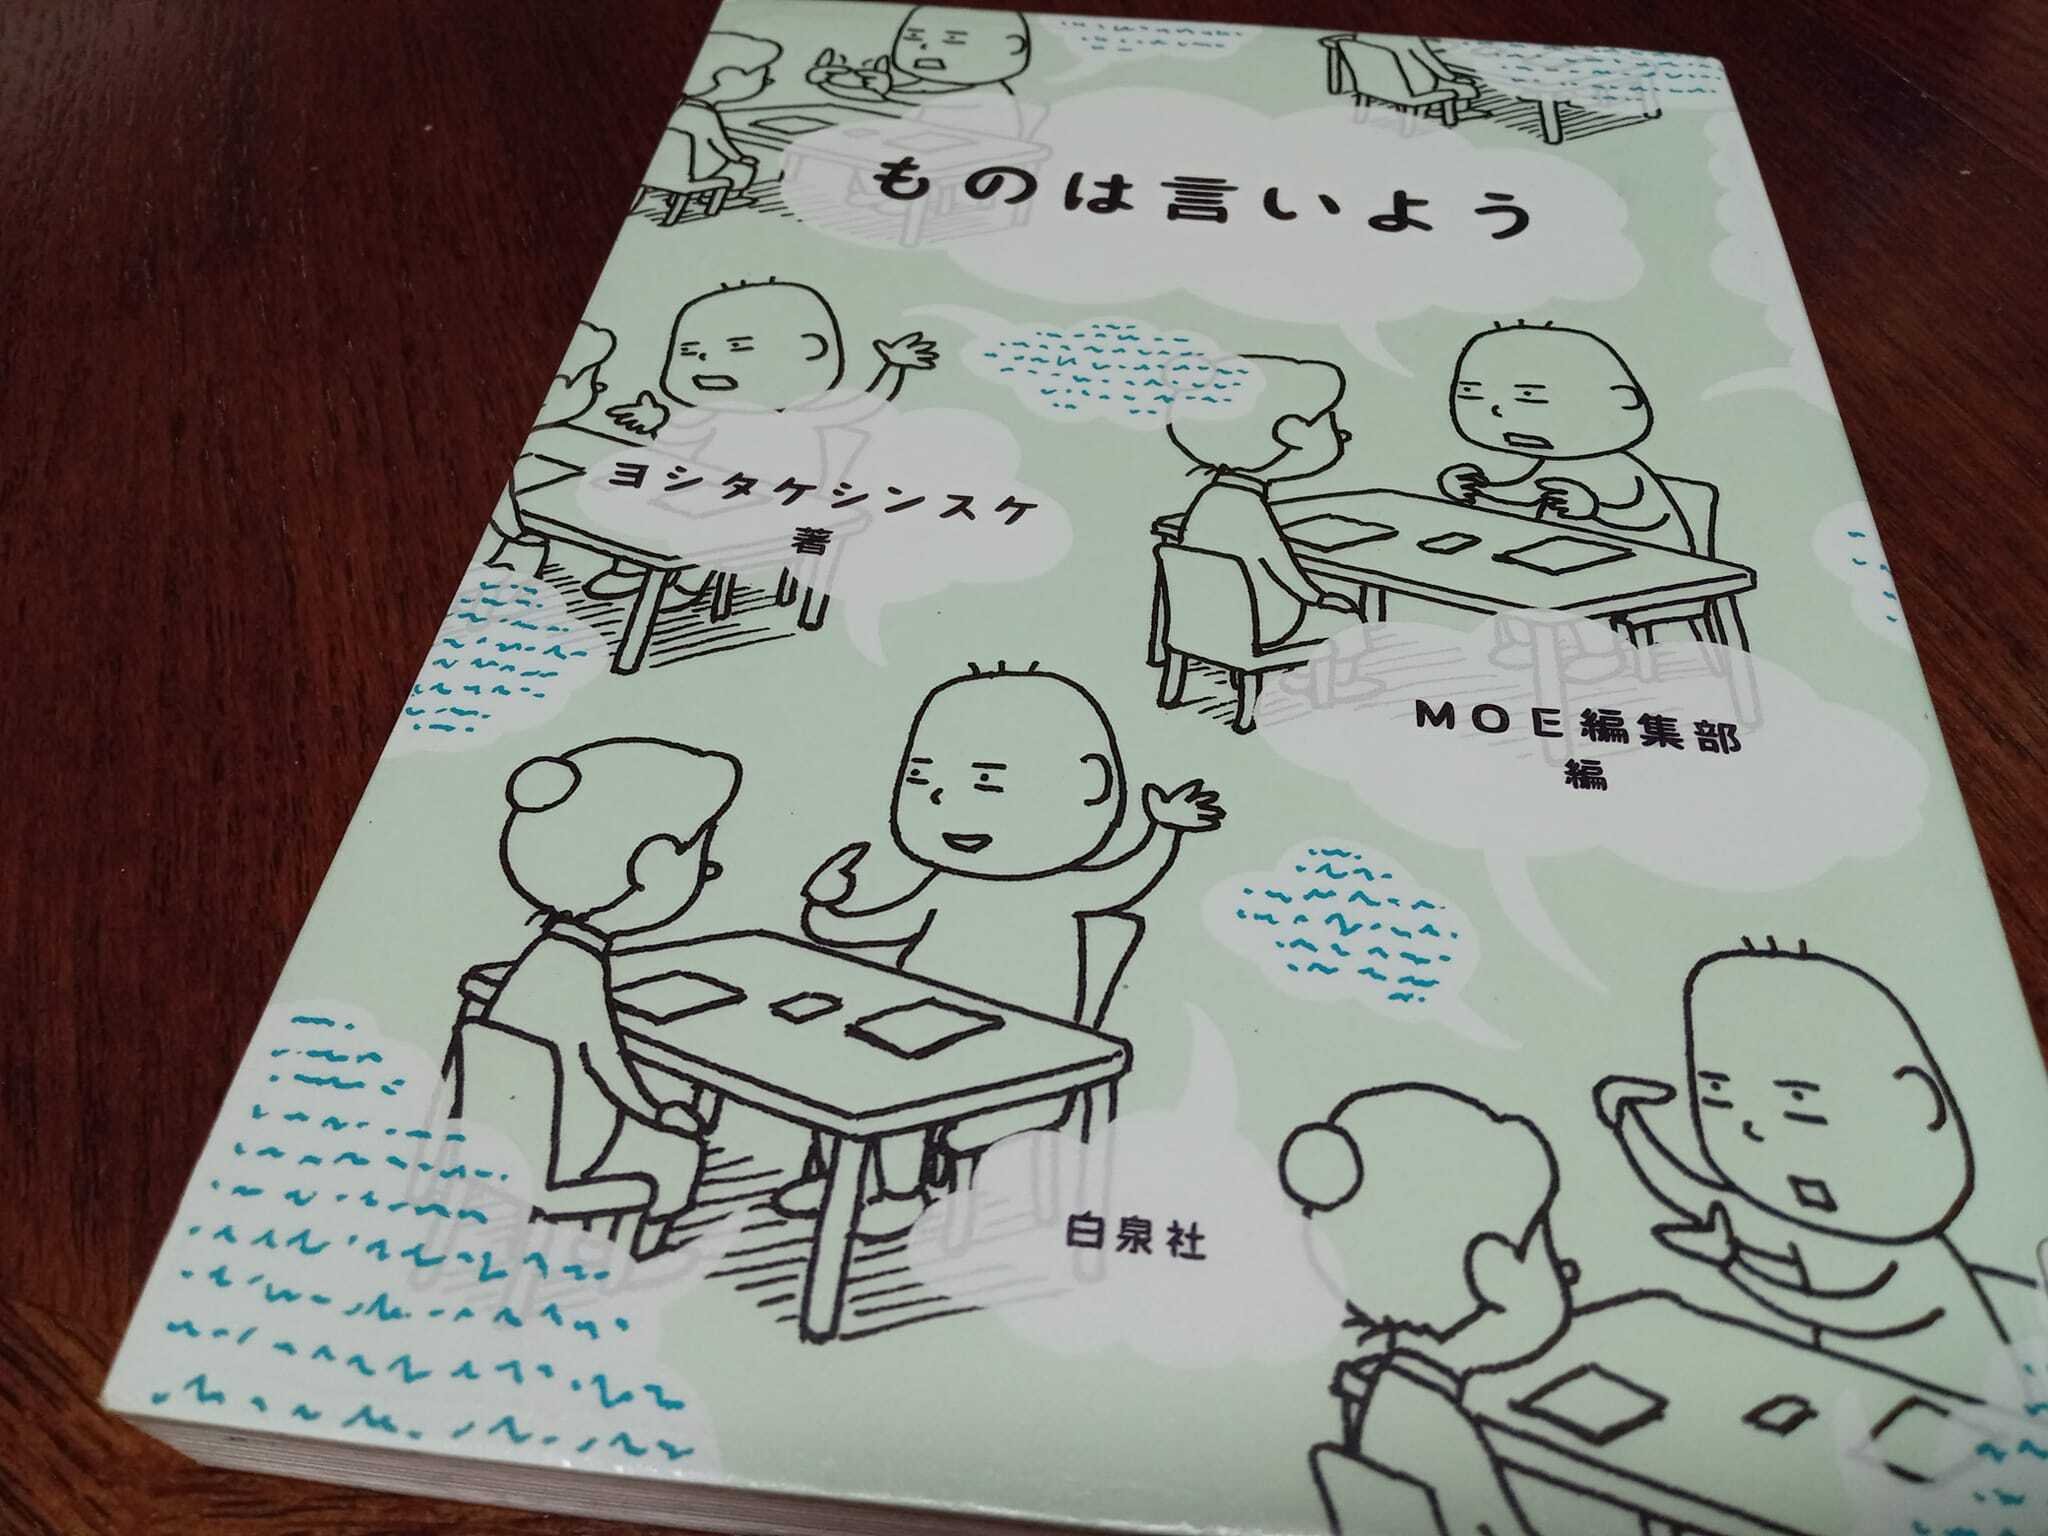 ものは言いよう
ヨシタケシンスケ
著
MOE編集部
編
白泉社